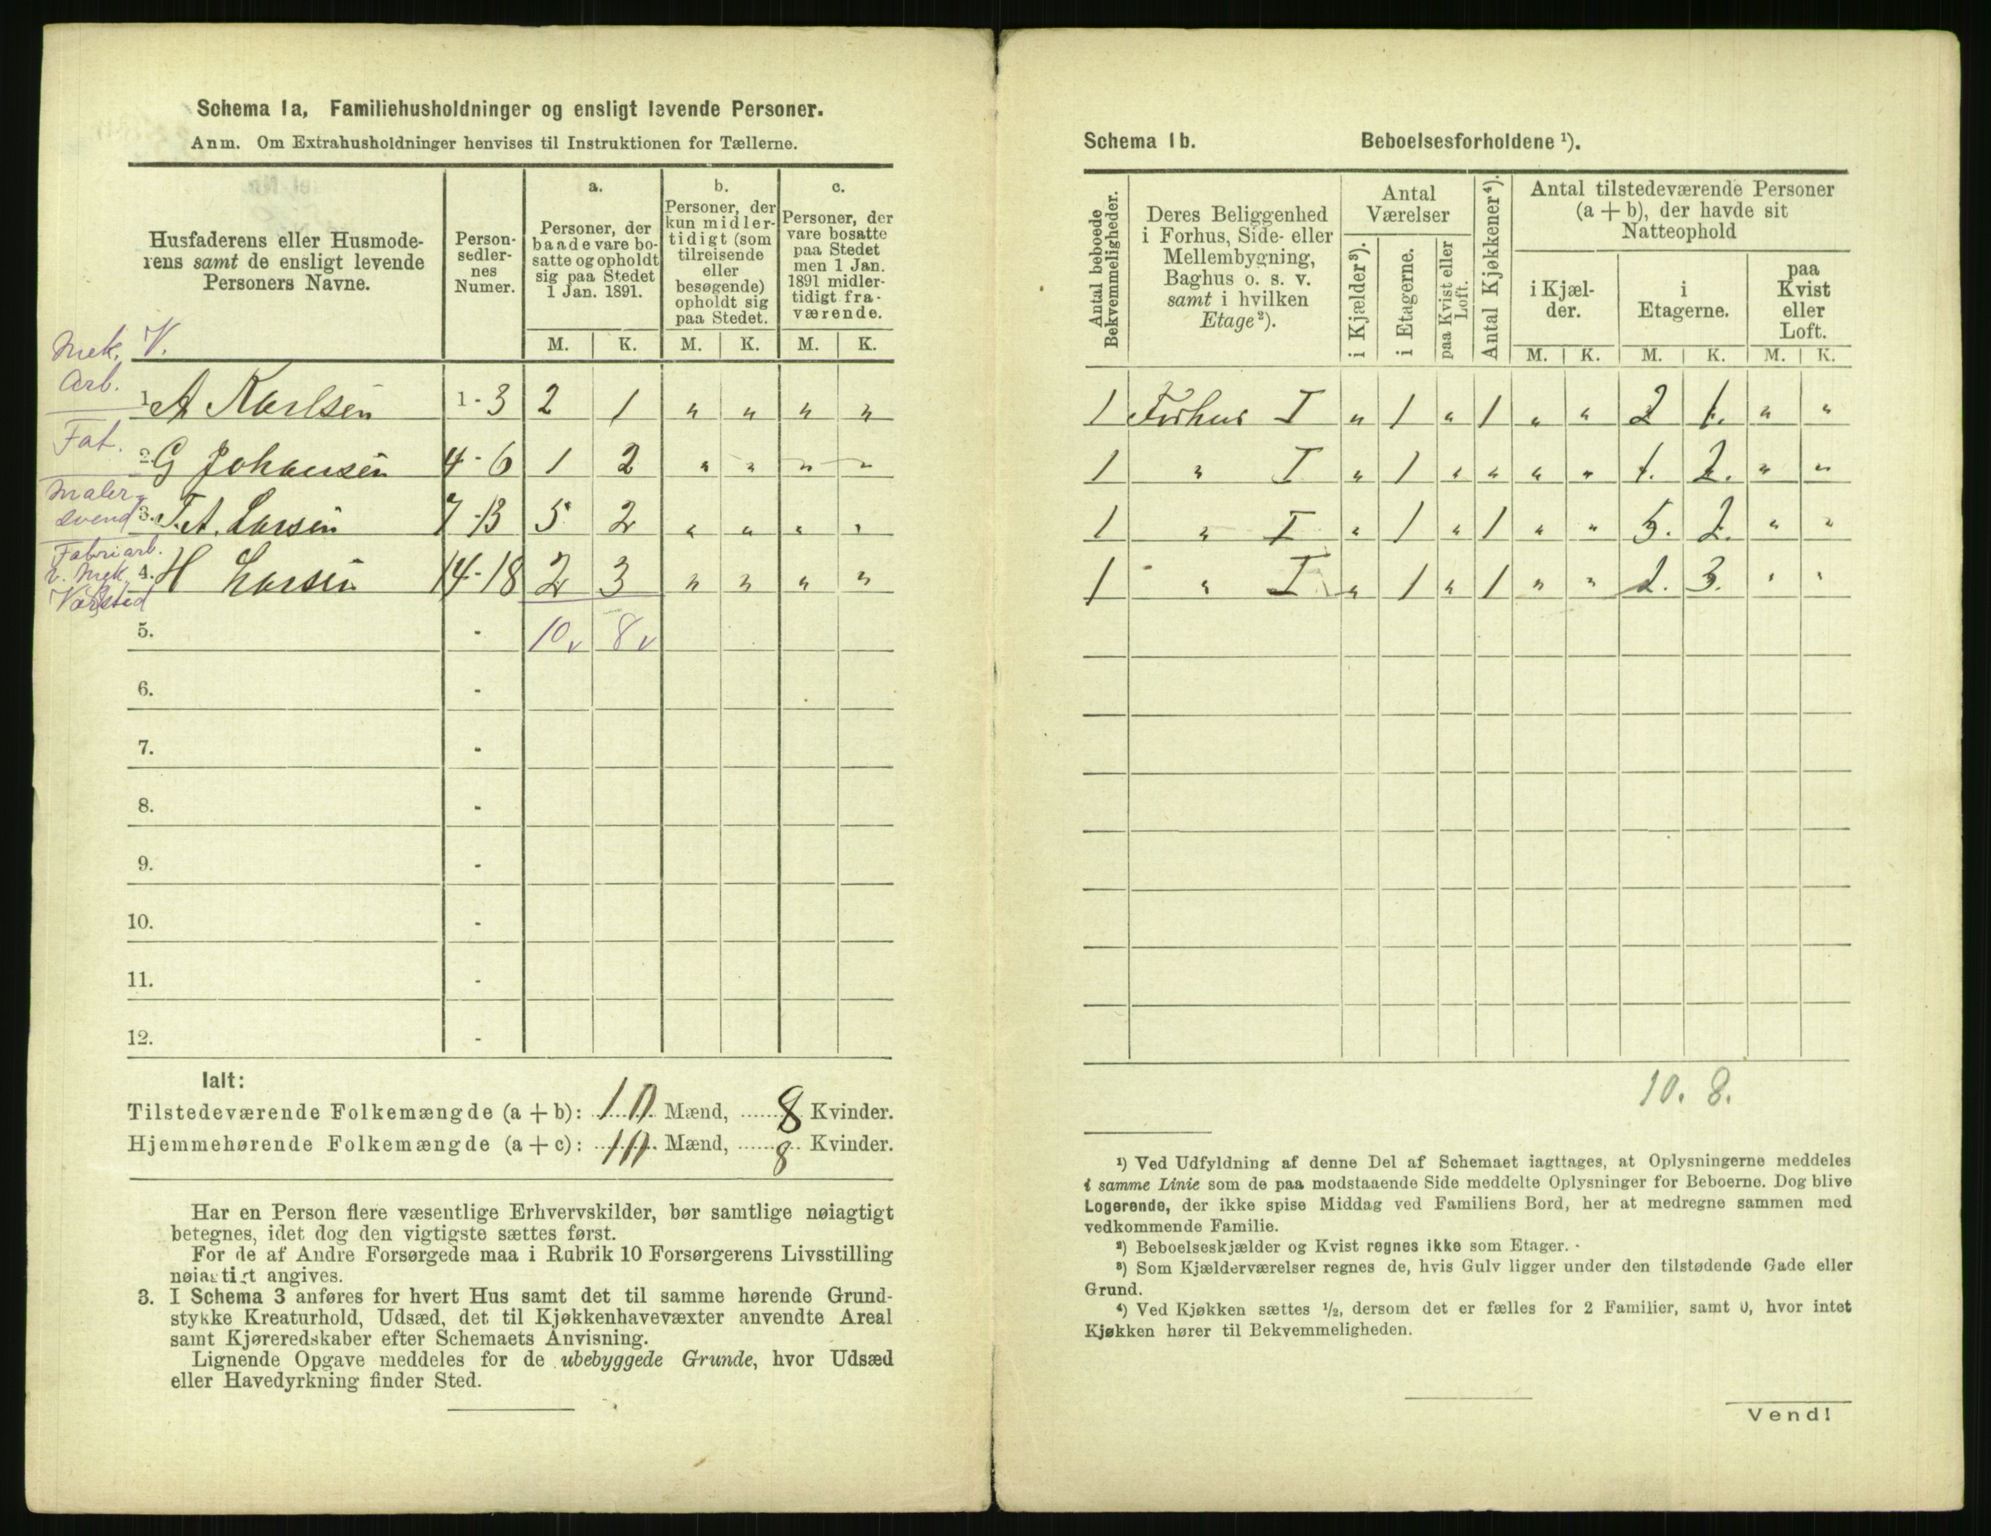 Schema 1a, Familiehusholdninger og ensligt levende Personer.
Anm. Om Extrahusholdninger henvises til Instruktionen for Tællerne.
Husfaderens eller Husmode-
rens samt de ensligt levende
Personers Navne.
Person-
sedler-
nes
Numer.
a.
Personer, der
baade vare bo-
satte og opholdt
sig paa Stedet
1 Jan. 1891.
b.
Personer, der
kun midler-
tidigt (som
tilreisende
eller
besøgende)
opholdt sig
paa Stedet.
c.
Personer, der
vare bosatte
paa Stedet
men 1 Jan.
1891 midler-
tidigt fra-
værende.
M. K. M. K. M. K.
Mek. V.
Arb.
1. A Karlsen 1 - 3 2 1 " " " "
Fat.
2. G Johansen 4 - 6 1 2 " " " "
Maler-
svend
3. T. A. Larsen 7 - 13 5 2 " " " "
Fabriarb.
v. Mek.
Værksted
4. H Larsen 14 - 18 2 3 " " " "
5. - 10 v 8 v
6. -
7. -
8. -
9. -
10. -
11. -
12. -
Ialt:
Tilstedeværende Folkemængde (a + b): 10 Mænd, 8 Kvinder.
Hjemmehørende Folkemængde (a + c): 10 Mænd, 8 Kvinder.
Har en Person flere væsentlige Erhvervskilder, bør samtlige nøiagtigt
betegnes, idet dog den vigtigste sættes først.
For de af Andre Forsørgede maa i Rubrik 10 Forsørgerens Livsstilling
nøiagtigt angives.
3. I Schema 3 anføres for hvert Hus samt det til samme hørende Grund-
stykke Kreaturhold, Udsæd, det til Kjøkkenhavevæxter anvendte Areal
samt Kjøreredskaber efter Schemaets Anvisning.
Lignende Opgave meddeles for de ubebyggede Grunde, hvor Udsæd
eller Havedyrkning finder Sted.
Schema 1b. Beboelsesforholdene ¹).
Antal beboede
Bekvemmeligheder.
Deres Beliggenhed
i Forhus, Side- eller
Mellembygning,
Baghus o. s. v.
samt i hvilken
Etage²).
Antal
Værelser
i Kjælder³).
i Etagerne.
paa Kvist eller
Loft.
Antal Kjøkkener⁴).
Antal tilstedeværende Personer
(a + b), der havde sit
Natteophold
i Kjæl-
der.
i
Etagerne.
paa
Kvist
eller
Loft.
M. K. M. K. M. K.
1 Forhus I " 1 " 1 " " 2 1. " "
1 " I " 1 " " " " 1. 2. " "
1 " I " 1 " 1 " " 5. 2. " "
1 " I " 1 " 1 " " 2. 3. " "
10. 8.
¹) Ved Udfyldning af denne Del af Schemaet iagttages, at Oplysningerne meddeles
i samme Linie som de paa modstaaende Side meddelte Oplysninger for Beboerne. Dog blive
Logerende, der ikke spise Middag ved Familiens Bord, her at medregne sammen med
vedkommende Familie.
²) Beboelseskjælder og Kvist regnes ikke som Etager.
³) Som Kjælderværelser regnes de, hvis Gulv ligger under den tilstødende Gade eller
Grund.
⁴) Ved Kjøkken sættes ½, dersom det er fælles for 2 Familier, samt 0, hvor intet
Kjøkken hører til Bekvemmeligheden.
Vend!